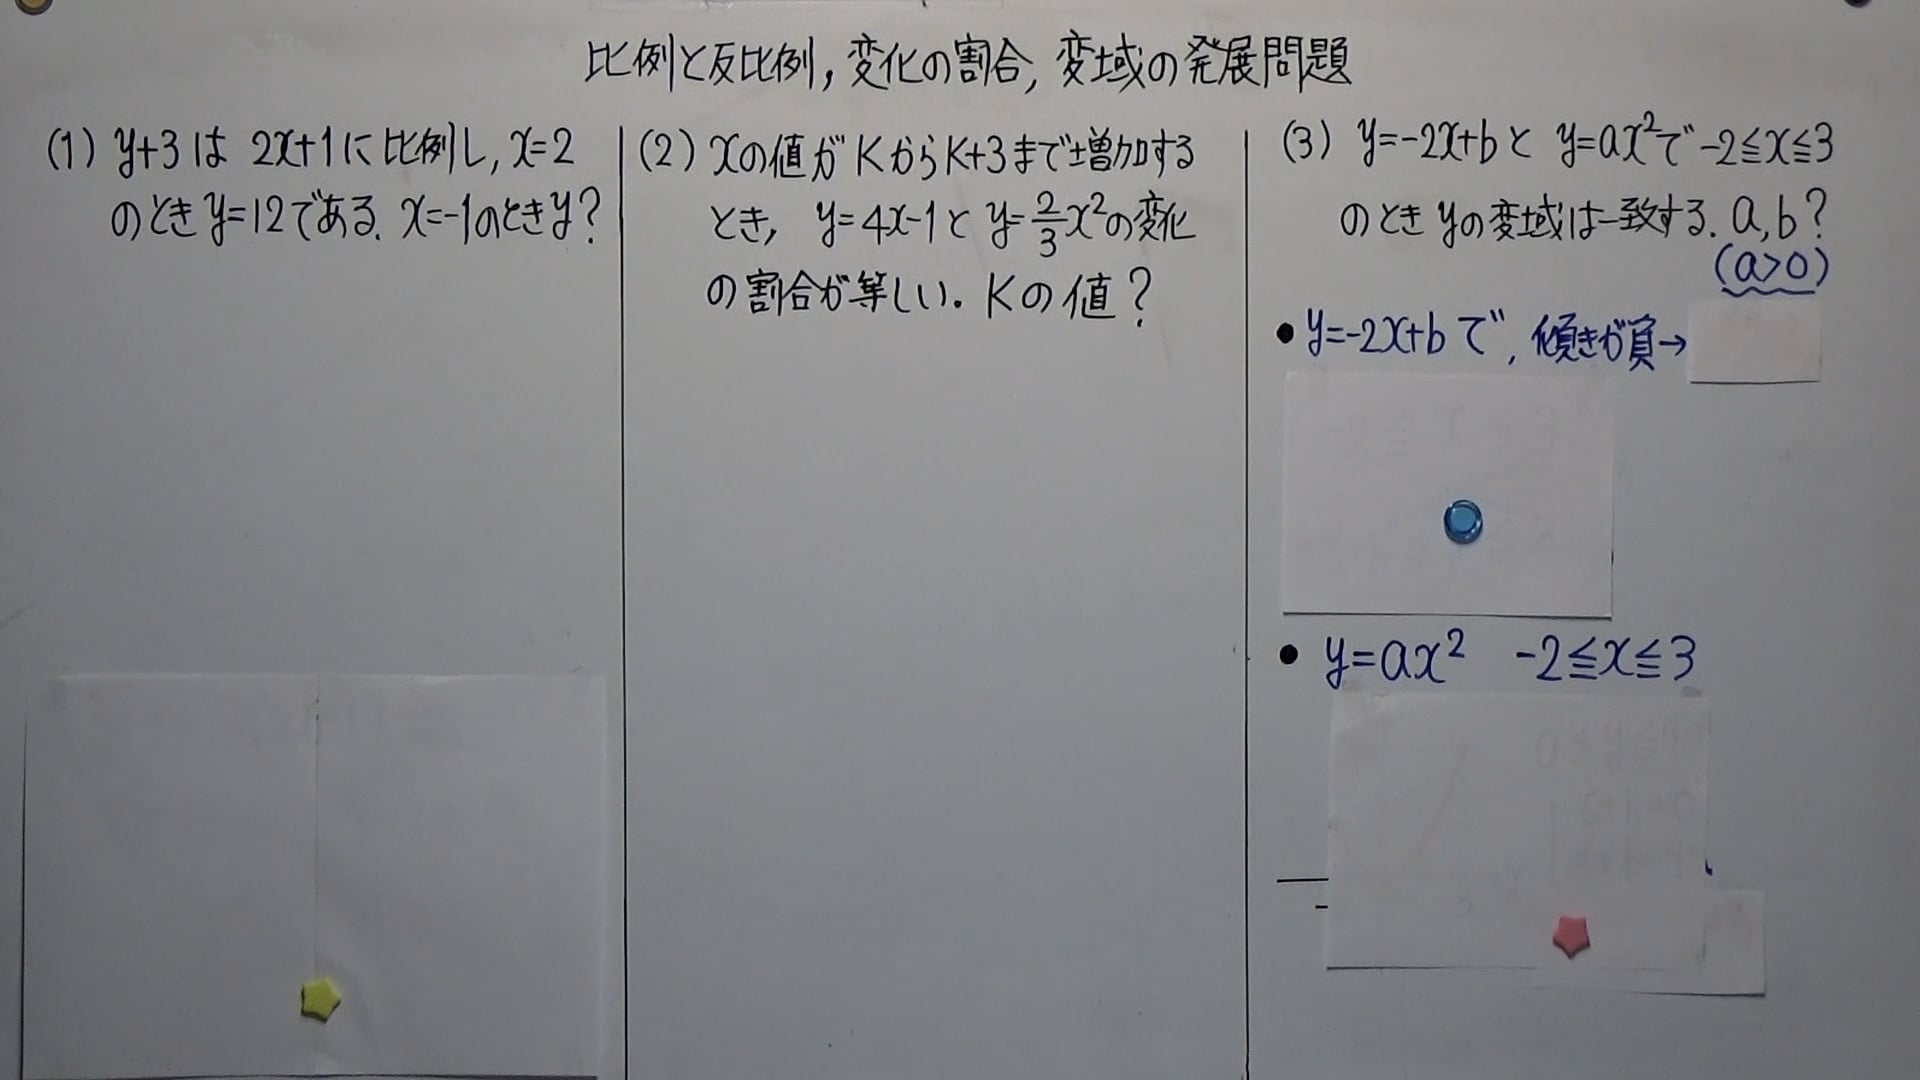 比例と反比例, 変化の割合, 変域の発展問題
(1) y+3は 2x+1に比例し, x=2
のときy=12である. x=-1のときy?
(2) xの値がKからK+3まで増加する
とき, y=4x-1とy=2/3x²の変化
の割合が等しい. Kの値?
(3) y=-2x+bと y=ax²で-2≦x≦3
のときyの変域は一致する. a,b?
(a>0)
• y=-2x+bで, 傾きが負→
• y=ax² -2≦x≦3